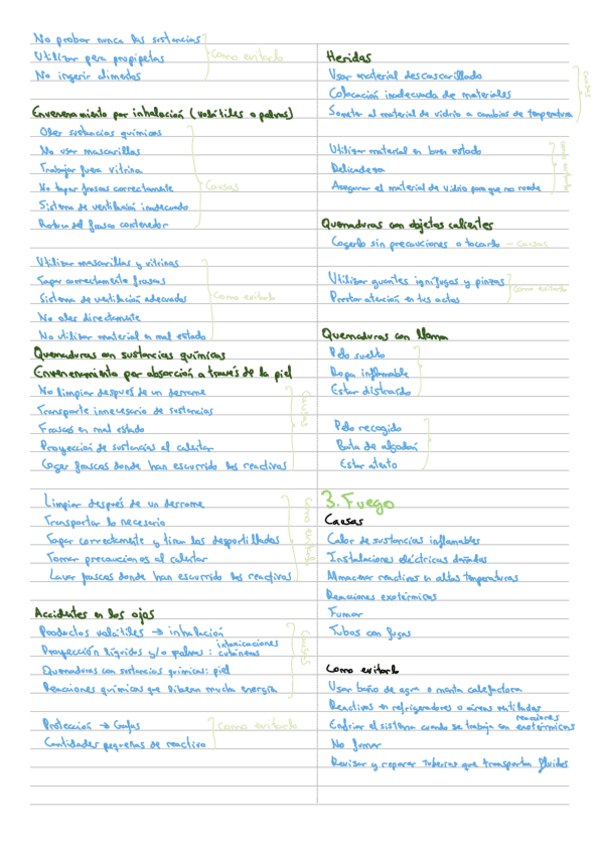 No probar nunca las sustancias
Utilizar pera propipetas
No ingerir alimentos
Como evitarlo
Envenenamiento por inhalación (volátiles o polvos)
Oler sustancias químicas
No usar mascarillas
Trabajar fuera vitrina
No tapar frascos correctamente
Sistema de ventilación inadecuado
Rotura del frasco contenedor
Causas
Utilizar mascarillas y vitrinas
Tapar correctamente frascos
Sistema de ventilación adecuados
No oler directamente
No utilizar material en mal estado
Como evitarlo
Quemaduras con sustancias químicas
Envenenamiento por absorción a través de la piel
No limpiar después de un derrame
Transporte innecesario de sustancias
Frascos en mal estado
Proyección de sustancias al calentar
Coger frascos donde han escurrido los reactivos
Causas
Limpiar después de un derrame
Transportar lo necesario
Tapar correctamente y tirar los desportillados
Tomar precauciones al calentar
Lavar frascos donde han escurrido los reactivos
Como evitarlo
Accidentes en los ojos
Productos volátiles → inhalación
Proyección líquidos y/o polvos: intoxicaciones cutáneas
Quemaduras con sustancias químicas: piel
Reaciones químicas que liberan mucha energía
Causas
Protección → Gafas
Cantidades pequeñas de reactivo
Como evitarlo
Heridas
Usar material descascarillado
Colocación inadecuada de materiales
Someter al material de vidrio a cambios de temperatura
Causas
Utilizar material en buen estado
Delicadeza
Asegurar el material de vidrio para que no ruede
Como evitarlo
Quemaduras con objetos calientes
Cogerlo sin precauciones o tocarlo – Causas
Utilizar guantes ignífugos y pinzas
Prestar atención en tus actos
Como evitarlo
Quemaduras con llama
Pelo suelto
Ropa inflamable
Estar distraido
Pelo recogido
Bata de algodón
Estar atento
3. Fuego
Causas
Calor de sustancias inflamables
Instalaciones eléctricas dañadas
Almacenar reactivos en altas temperaturas
Reaciones exotérmicas
Fumar
Tubos con fugas
Como evitarlo
Usar baño de agua o manta calefactora
Reactivos en refrigeradores o áreas ventiladas
Enfriar el sistema cuando se trabaja con reacciones exotérmicas
No fumar
Revisar y reparar tuberías que transportan fluidos